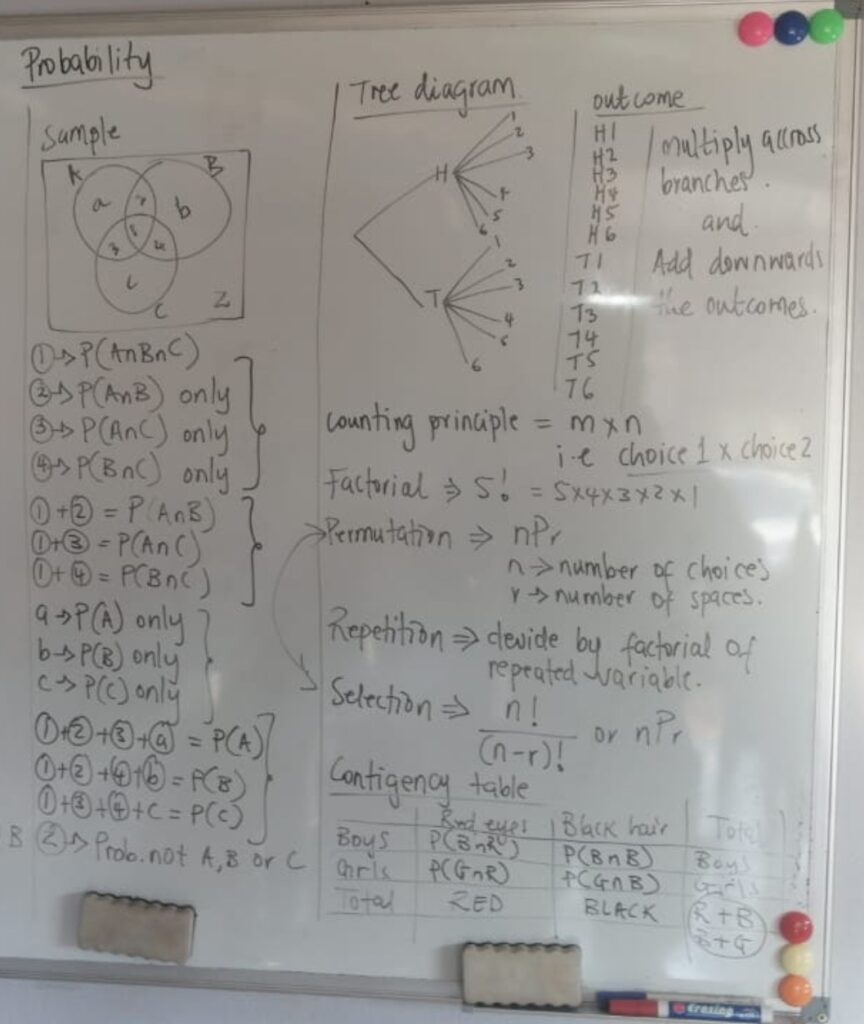 Probability
Sample
A
B
a
2
b
1
3
4
c
C
Z
①→P(A∩B∩C)
②→P(A∩B) only
③→P(A∩C) only
④→P(B∩C) only
①+② = P(A∩B)
①+③ = P(A∩C)
①+④ = P(B∩C)
a→P(A) only
b→P(B) only
c→P(C) only
①+②+③+ⓐ = P(A)
①+②+④+ⓑ = P(B)
①+③+④+C = P(C)
B
Ⓩ→ Prob. not A, B or C
Tree diagram
H
1
2
3
4
5
6
T
1
2
3
4
5
6
outcome
H1
H2
H3
H4
H5
H6
T1
T2
T3
T4
T5
T6
multiply accross
branches.
and.
Add downwards
the outcomes.
Counting principle = m×n
i.e choice 1 × choice 2
Factorial ⇒ 5! = 5×4×3×2×1
Permutation ⇒ nPr
n→number of choices
r→number of spaces.
Repetition ⇒ devide by factorial of
repeated variable.
Selection ⇒ n!/(n-r)! or nPr
Contigency table
Red eyes Black hair Total
Boys P(B∩R) P(B∩B) Boys
Girls P(G∩R) P(G∩B) Girls
Total RED BLACK R+B
B+G
Erasing